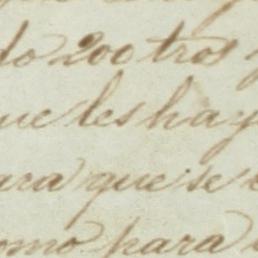 do 200 tros
que les hay
para que se
como para